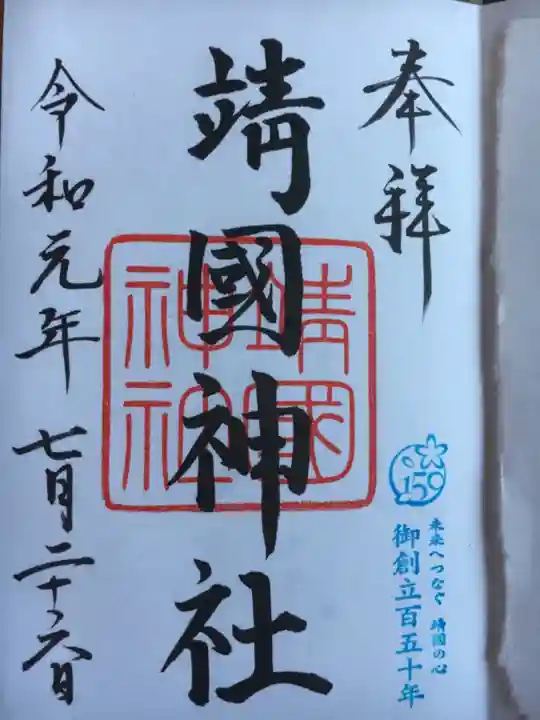 奉拝
靖國神社
靖國
神社
令和元年 七月二十六日
150
未来へつなぐ 靖國の心
御創立百五十年